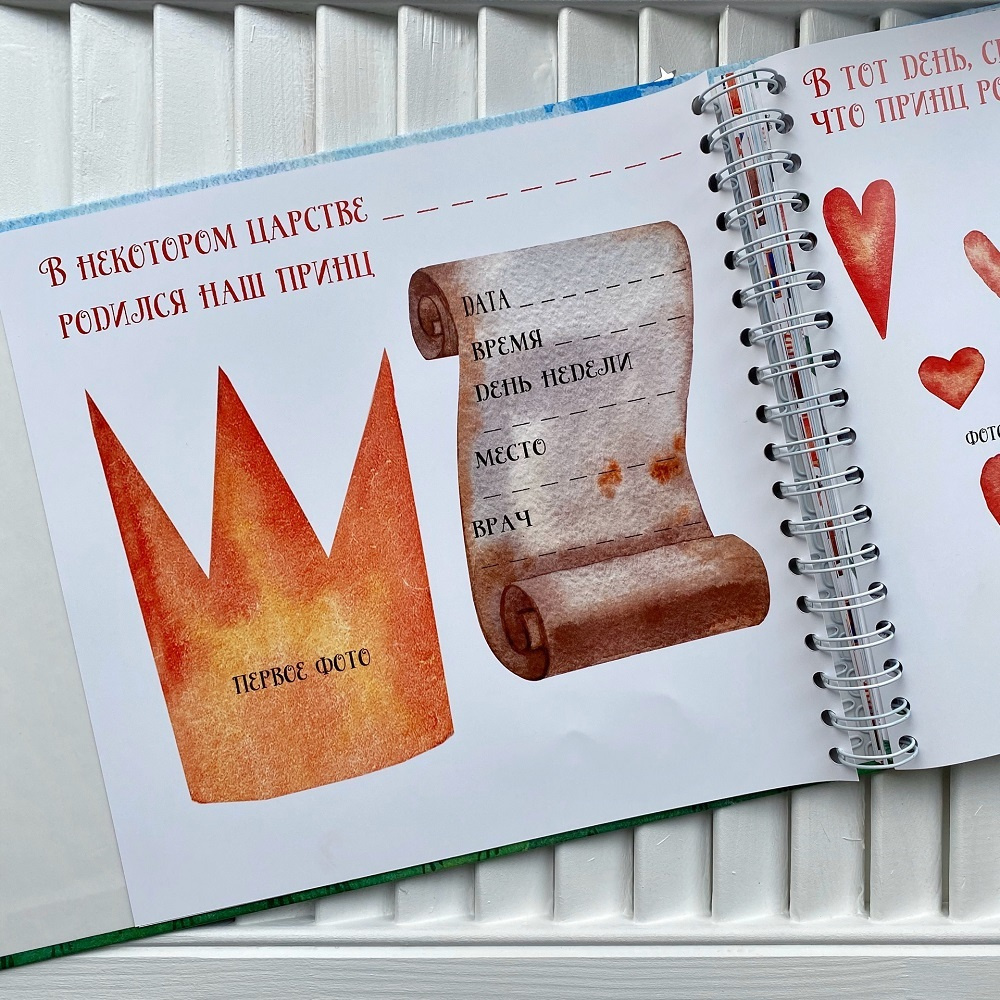 В НЕКОТОРОМ ЦАРСТВЕ
РОДИЛСЯ НАШ ПРИНЦ
ДАТА
ВРЕМЯ
ДЕНЬ НЕДЕЛИ
МЕСТО
ВРАЧ
ПЕРВОЕ ФОТО
В ТОТ ДЕНЬ,
ЧТО ПРИНЦ